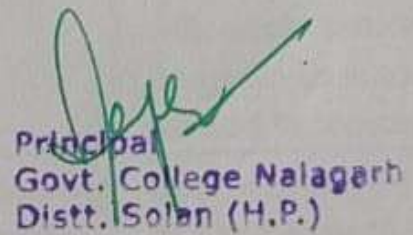 Principal
Govt. College Nalagarh
Distt. Solan (H.P.)